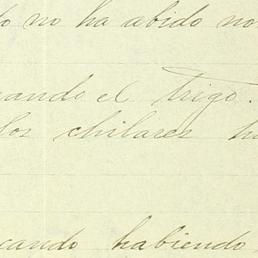 no ha abido no
ando el trigo.
los chilares
cando habiendo